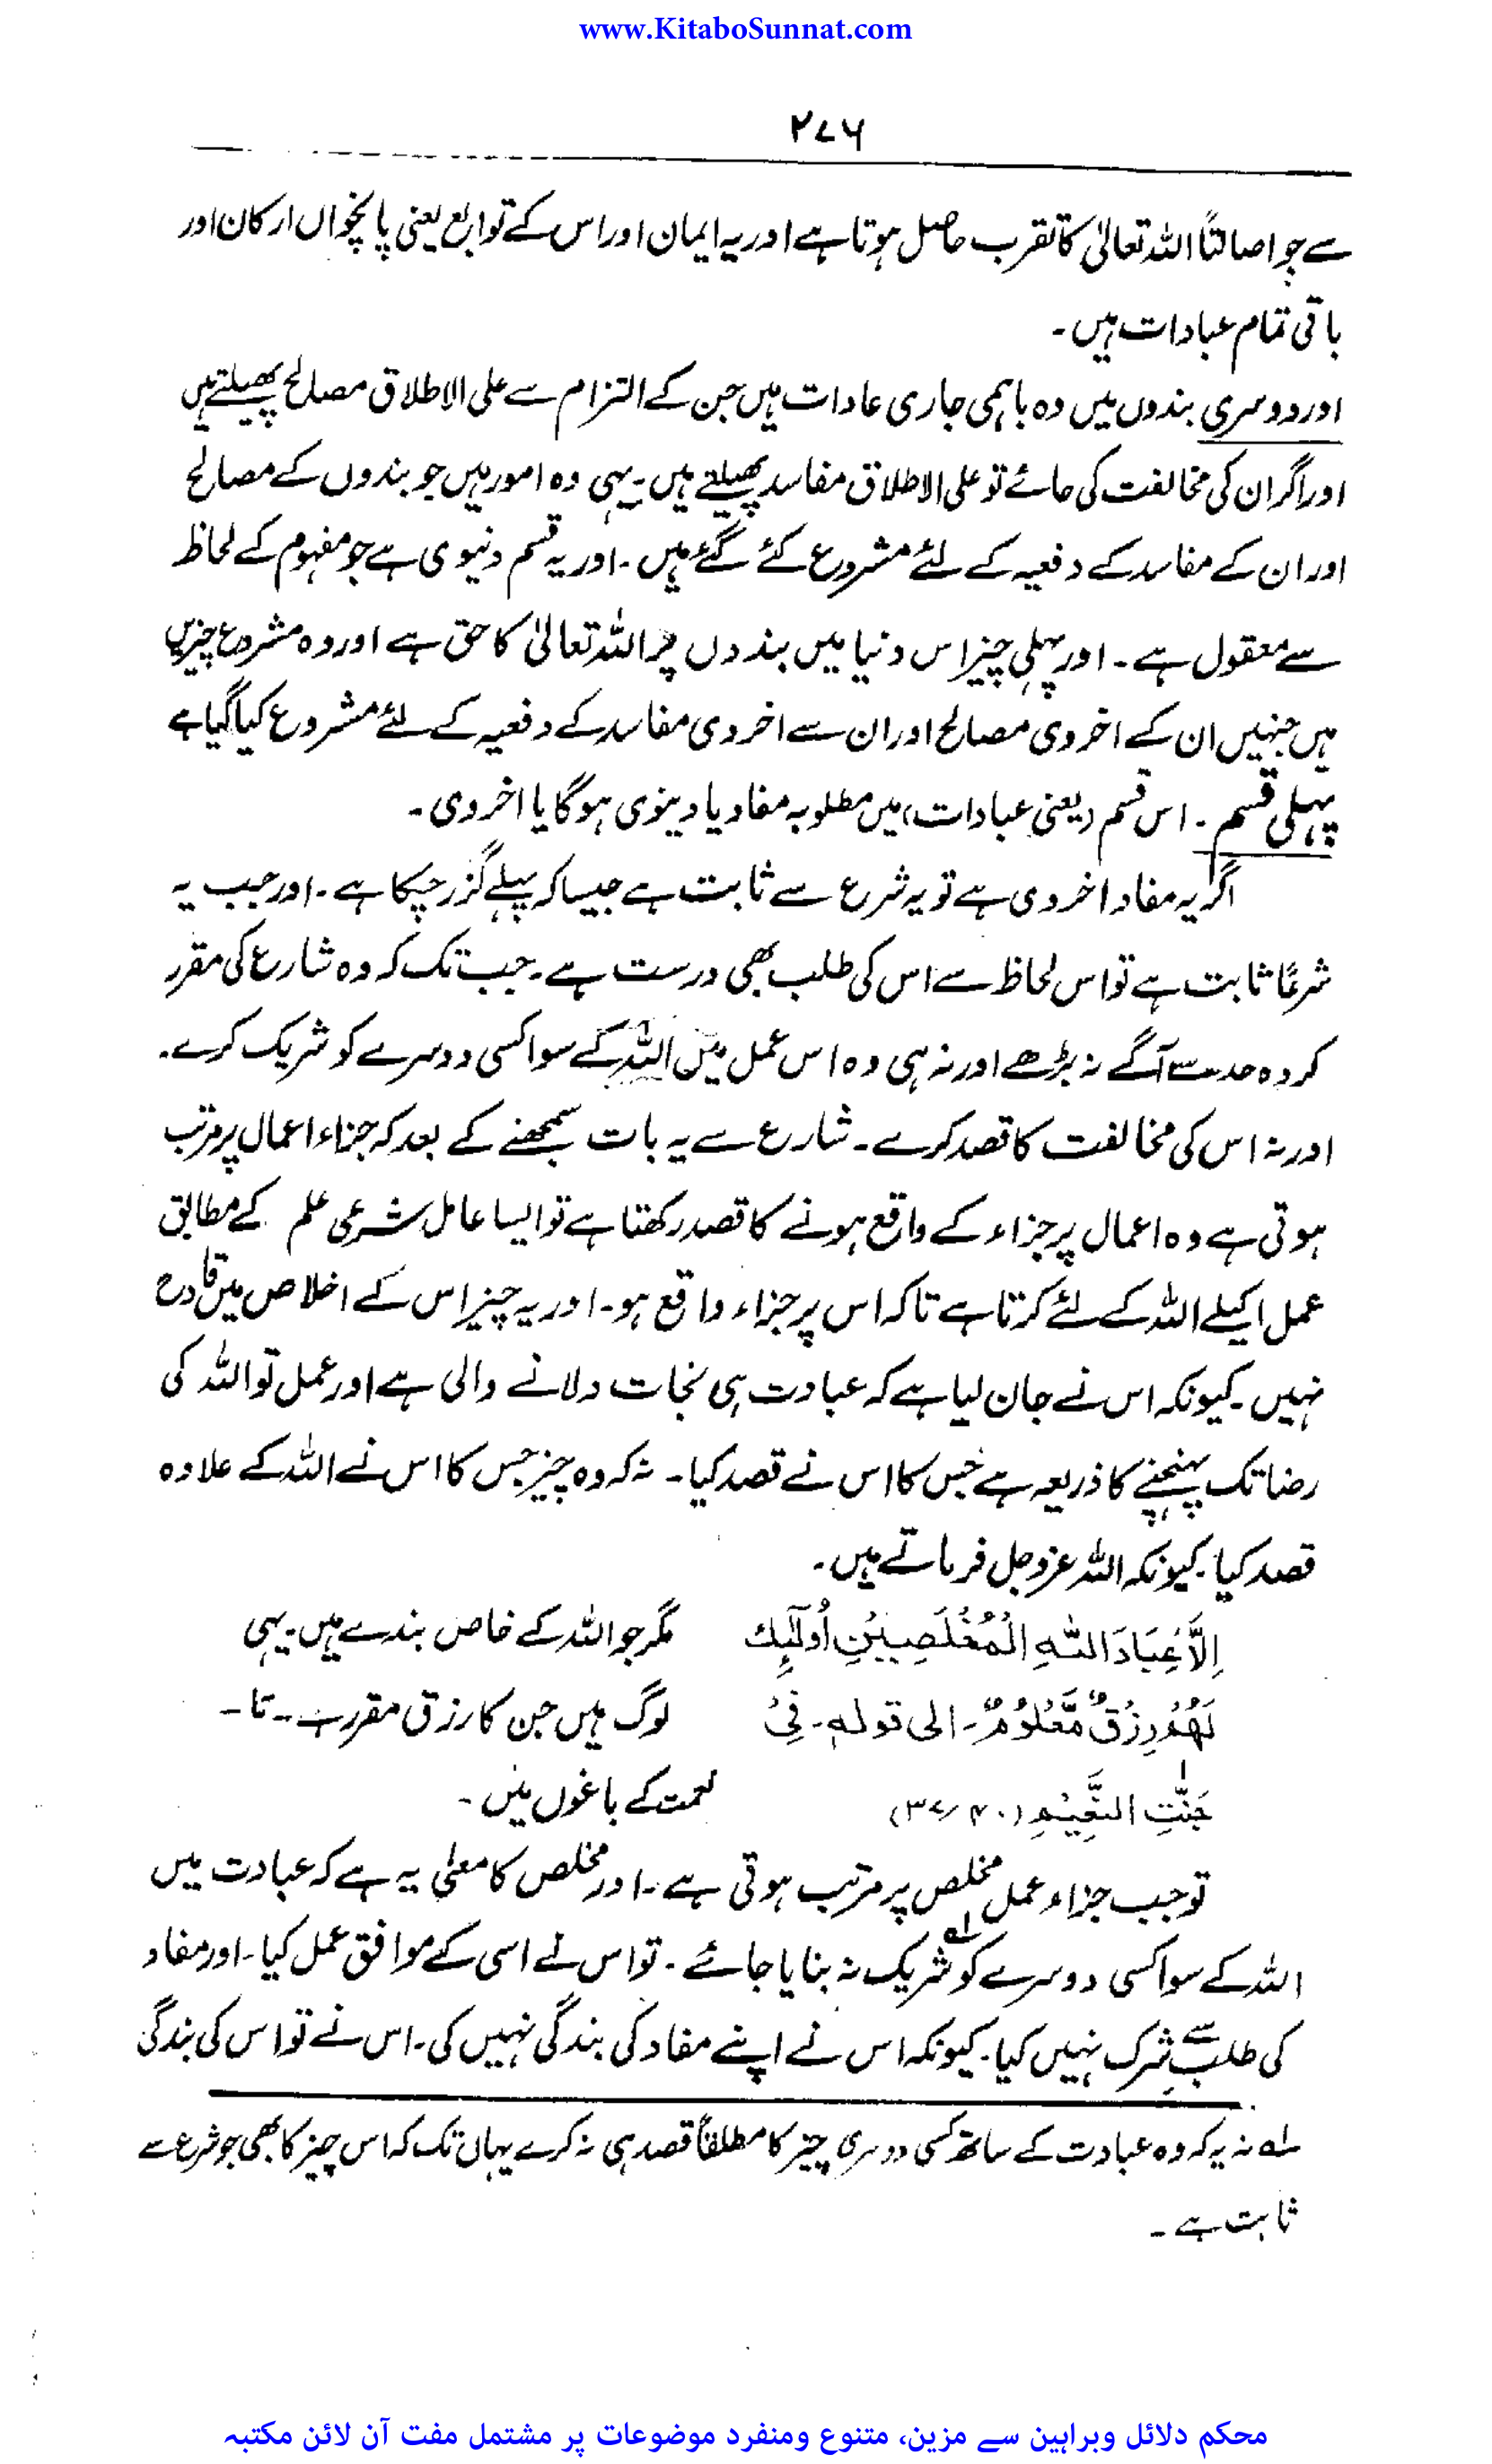 www.KitaboSunnat.com
۲۷۶
سے جو اصالتاً اللہ تعالیٰ کا تقرب حاصل ہوتا ہے اور یہ ایمان اور اس کے توابع یعنی پانچواں ارکان اور
باقی تمام عبادات ہیں۔
اور دوسری بندوں میں وہ باہمی جاری عادات ہیں جن کے التزام سے علی الاطلاق مصالح پھیلتے ہیں
اور اگر ان کی مخالفت کی جائے تو علی الاطلاق مفاسد پھیلتے ہیں۔ یہی وہ امور ہیں جو بندوں کے مصالح
اور ان کے مفاسد کے دفعیہ کے لئے مشروع کئے گئے ہیں۔ اور یہ قسم دنیوی ہے جو مفہوم کے لحاظ
سے معقول ہے۔ اور پہلی چیز اس دنیا میں بندوں پر اللہ تعالیٰ کا حق ہے اور وہ مشروع چیزیں
ہیں جنہیں ان کے اخروی مصالح اور ان سے اخروی مفاسد کے دفعیہ کے لئے مشروع کیا گیا ہے
پہلی قسم۔ اس قسم (یعنی عبادات) میں مطلوبہ مفاد یا دینوی ہوگا یا اخروی۔
اگر یہ مفاد اخروی ہے تو یہ شرع سے ثابت ہے جیسا کہ پہلے گزر چکا ہے۔ اور جب یہ
شرعًا ثابت ہے تو اس لحاظ سے اس کی طلب بھی درست ہے۔ جب تک کہ وہ شارع کی مقرر
کردہ حد سے آگے نہ بڑھے اور نہ ہی وہ اس عمل میں اللہ کے سوا کسی دوسرے کو شریک کرے۔
اور نہ اس کی مخالفت کا قصد کرے۔ شارع سے یہ بات سمجھنے کے بعد کہ جزاء اعمال پر مرتب
ہوتی ہے وہ اعمال پر جزاء کے واقع ہونے کا قصد رکھتا ہے تو ایسا عامل شرعی علم کے مطابق
عمل اکیلے اللہ کے لئے کرتا ہے تاکہ اس پر جزاء واقع ہو۔ اور یہ چیز اس کے اخلاص میں قادح
نہیں۔ کیونکہ اس نے جان لیا ہے کہ عبادت ہی نجات دلانے والی ہے اور عمل تو اللہ کی
رضا تک پہنچنے کا ذریعہ ہے جس کا اس نے قصد کیا۔ نہ کہ وہ چیز جس کا اس نے اللہ کے علاوہ
قصد کیا۔ کیونکہ اللہ عزوجل فرماتے ہیں۔
اِلَّا عِبَادَ اللّٰهِ الْمُخْلَصِيْنَ اُولٰٓئِكَ مگر جو اللہ کے خاص بندے ہیں۔ یہی
لَهُمْ رِزْقٌ مَّعْلُوْمٌ۔ الی قولہ۔ فِيْ لوگ ہیں جن کا رزق مقرر ہے۔ تا۔
جَنّٰتِ النَّعِيْمِ (۳۷/۴۰) نعمت کے باغوں میں۔
تو جب جزاء عمل مخلص پر مرتب ہوتی ہے۔ اور مخلص کا معنٰی یہ ہے کہ عبادت میں
اللہ کے سوا کسی دوسرے کو شریک نہ بنایا جائے۔ تو اس نے اسی کے موافق عمل کیا۔ اور مفاد
کی طلب سے شرک نہیں کیا۔ کیونکہ اس نے اپنے مفاد کی بندگی نہیں کی۔ اس نے تو اس کی بندگی
لہ نہ یہ کہ وہ عبادت کے ساتھ کسی دوسری چیز کا مطلقاً قصد ہی نہ کرے یہاں تک کہ اس چیز کا بھی جو شرع سے
ثابت ہے۔
محکم دلائل وبراہین سے مزین، متنوع ومنفرد موضوعات پر مشتمل مفت آن لائن مکتبہ